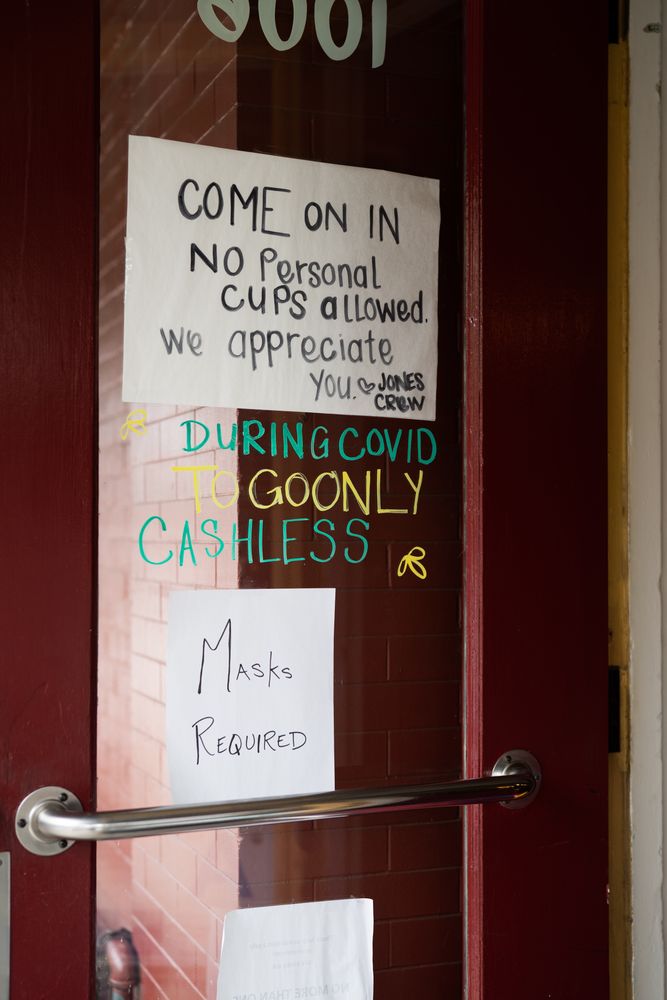 COME ON IN
NO Personal
CUPS allowed.
We appreciate
you. JONES
CREW
DURING COVID
TO GO ONLY
CASHLESS
MASKS
REQUIRED
NO MORE THAN ONE